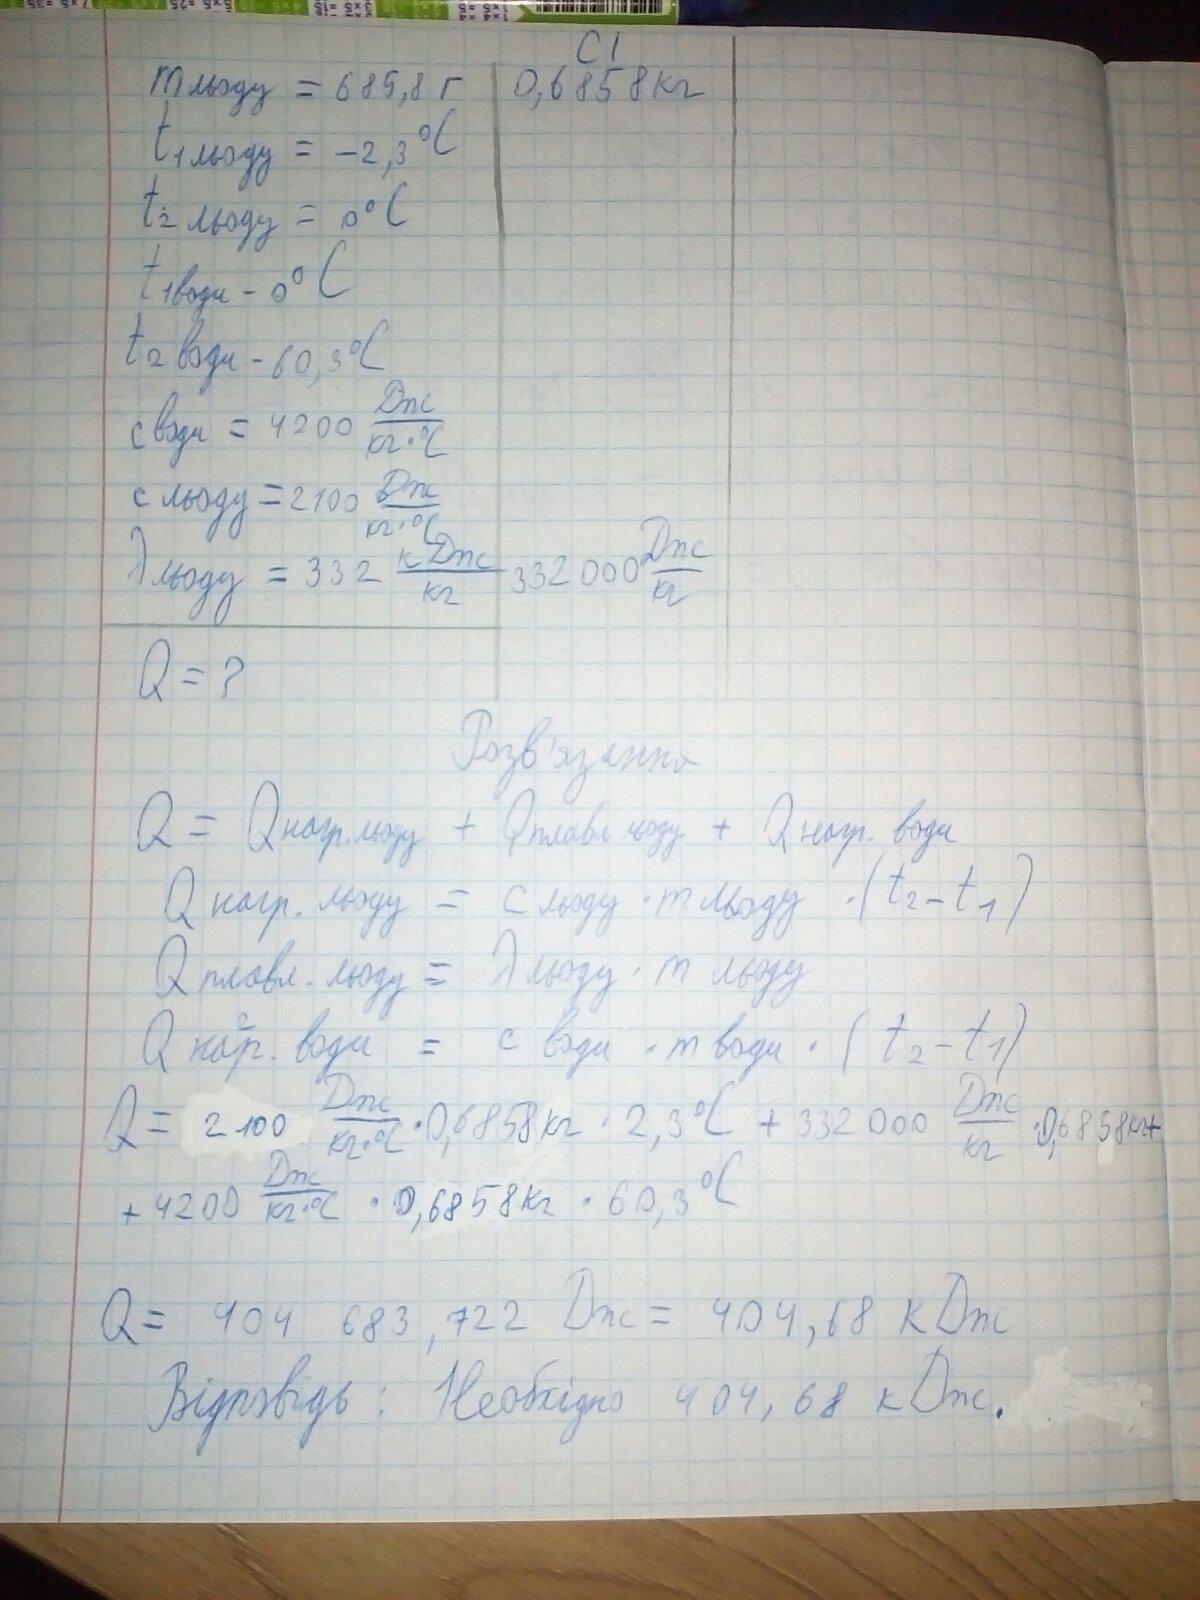 СІ
m льоду = 685,8 г 0,6858 кг
t₁ льоду = -2,3°C
t₂ льоду = 0°C
t₁ води - 0°C
t₂ води - 60,3°C
c води = 4200 Дж/кг·°C
c льоду = 2100 Дж/кг·°C
λ льоду = 332 кДж/кг 332 000 Дж/кг
Q = ?
Розв'язання
Q = Q нагр. льоду + Q плавл. льоду + Q нагр. води
Q нагр. льоду = c льоду · m льоду · (t₂ - t₁)
Q плавл. льоду = λ льоду · m льоду
Q нагр. води = c води · m води · (t₂ - t₁)
Q = 2100 Дж/кг·°C · 0,6858 кг · 2,3°C + 332 000 Дж/кг · 0,6858 кг +
+ 4200 Дж/кг·°C · 0,6858 кг · 60,3°C
Q = 404 683,722 Дж = 404,68 кДж
Відповідь: Необхідно 404,68 кДж.